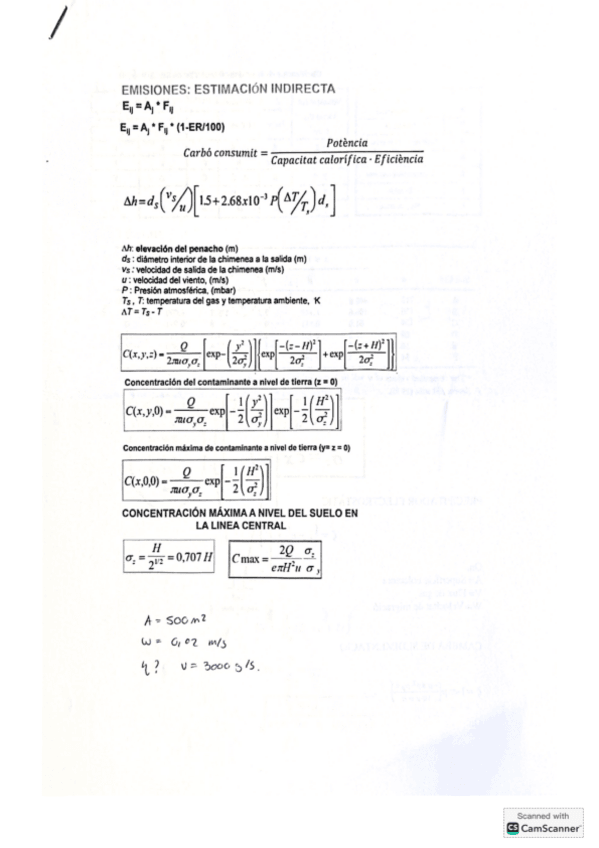 EMISIONES: ESTIMACIÓN INDIRECTA
E_ij = A_j * F_ij
E_ij = A_j * F_ij * (1-ER/100)
Carbó consumit = Potència / Capacitat calorífica · Eficiència
Δh = d_s (v_s/u) [1.5 + 2.68x10^-3 P (ΔT/T_s) d_s]
Δh: elevación del penacho (m)
d_s : diámetro interior de la chimenea a la salida (m)
v_s : velocidad de salida de la chimenea (m/s)
u : velocidad del viento, (m/s)
P : Presión atmosférica, (mbar)
T_s , T: temperatura del gas y temperatura ambiente, K
ΔT = T_s - T
C(x,y,z) = Q / 2πuσ_yσ_z [exp-(y^2 / 2σ_y^2)] {exp[-(z-H)^2 / 2σ_z^2] + exp[-(z+H)^2 / 2σ_z^2]}
Concentración del contaminante a nivel de tierra (z = 0)
C(x,y,0) = Q / πuσ_yσ_z exp[-1/2 (y^2 / σ_y^2)] exp[-1/2 (H^2 / σ_z^2)]
Concentración máxima de contaminante a nivel de tierra (y= z = 0)
C(x,0,0) = Q / πuσ_yσ_z exp[-1/2 (H^2 / σ_z^2)]
CONCENTRACIÓN MÁXIMA A NIVEL DEL SUELO EN
LA LINEA CENTRAL
σ_z = H / 2^1/2 = 0,707 H
C max = 2Q / eπH^2u σ_z / σ_y
A = 500 m²
W = 0,02 m/s
η? V = 3000 g/s.
Scanned with
CS CamScanner